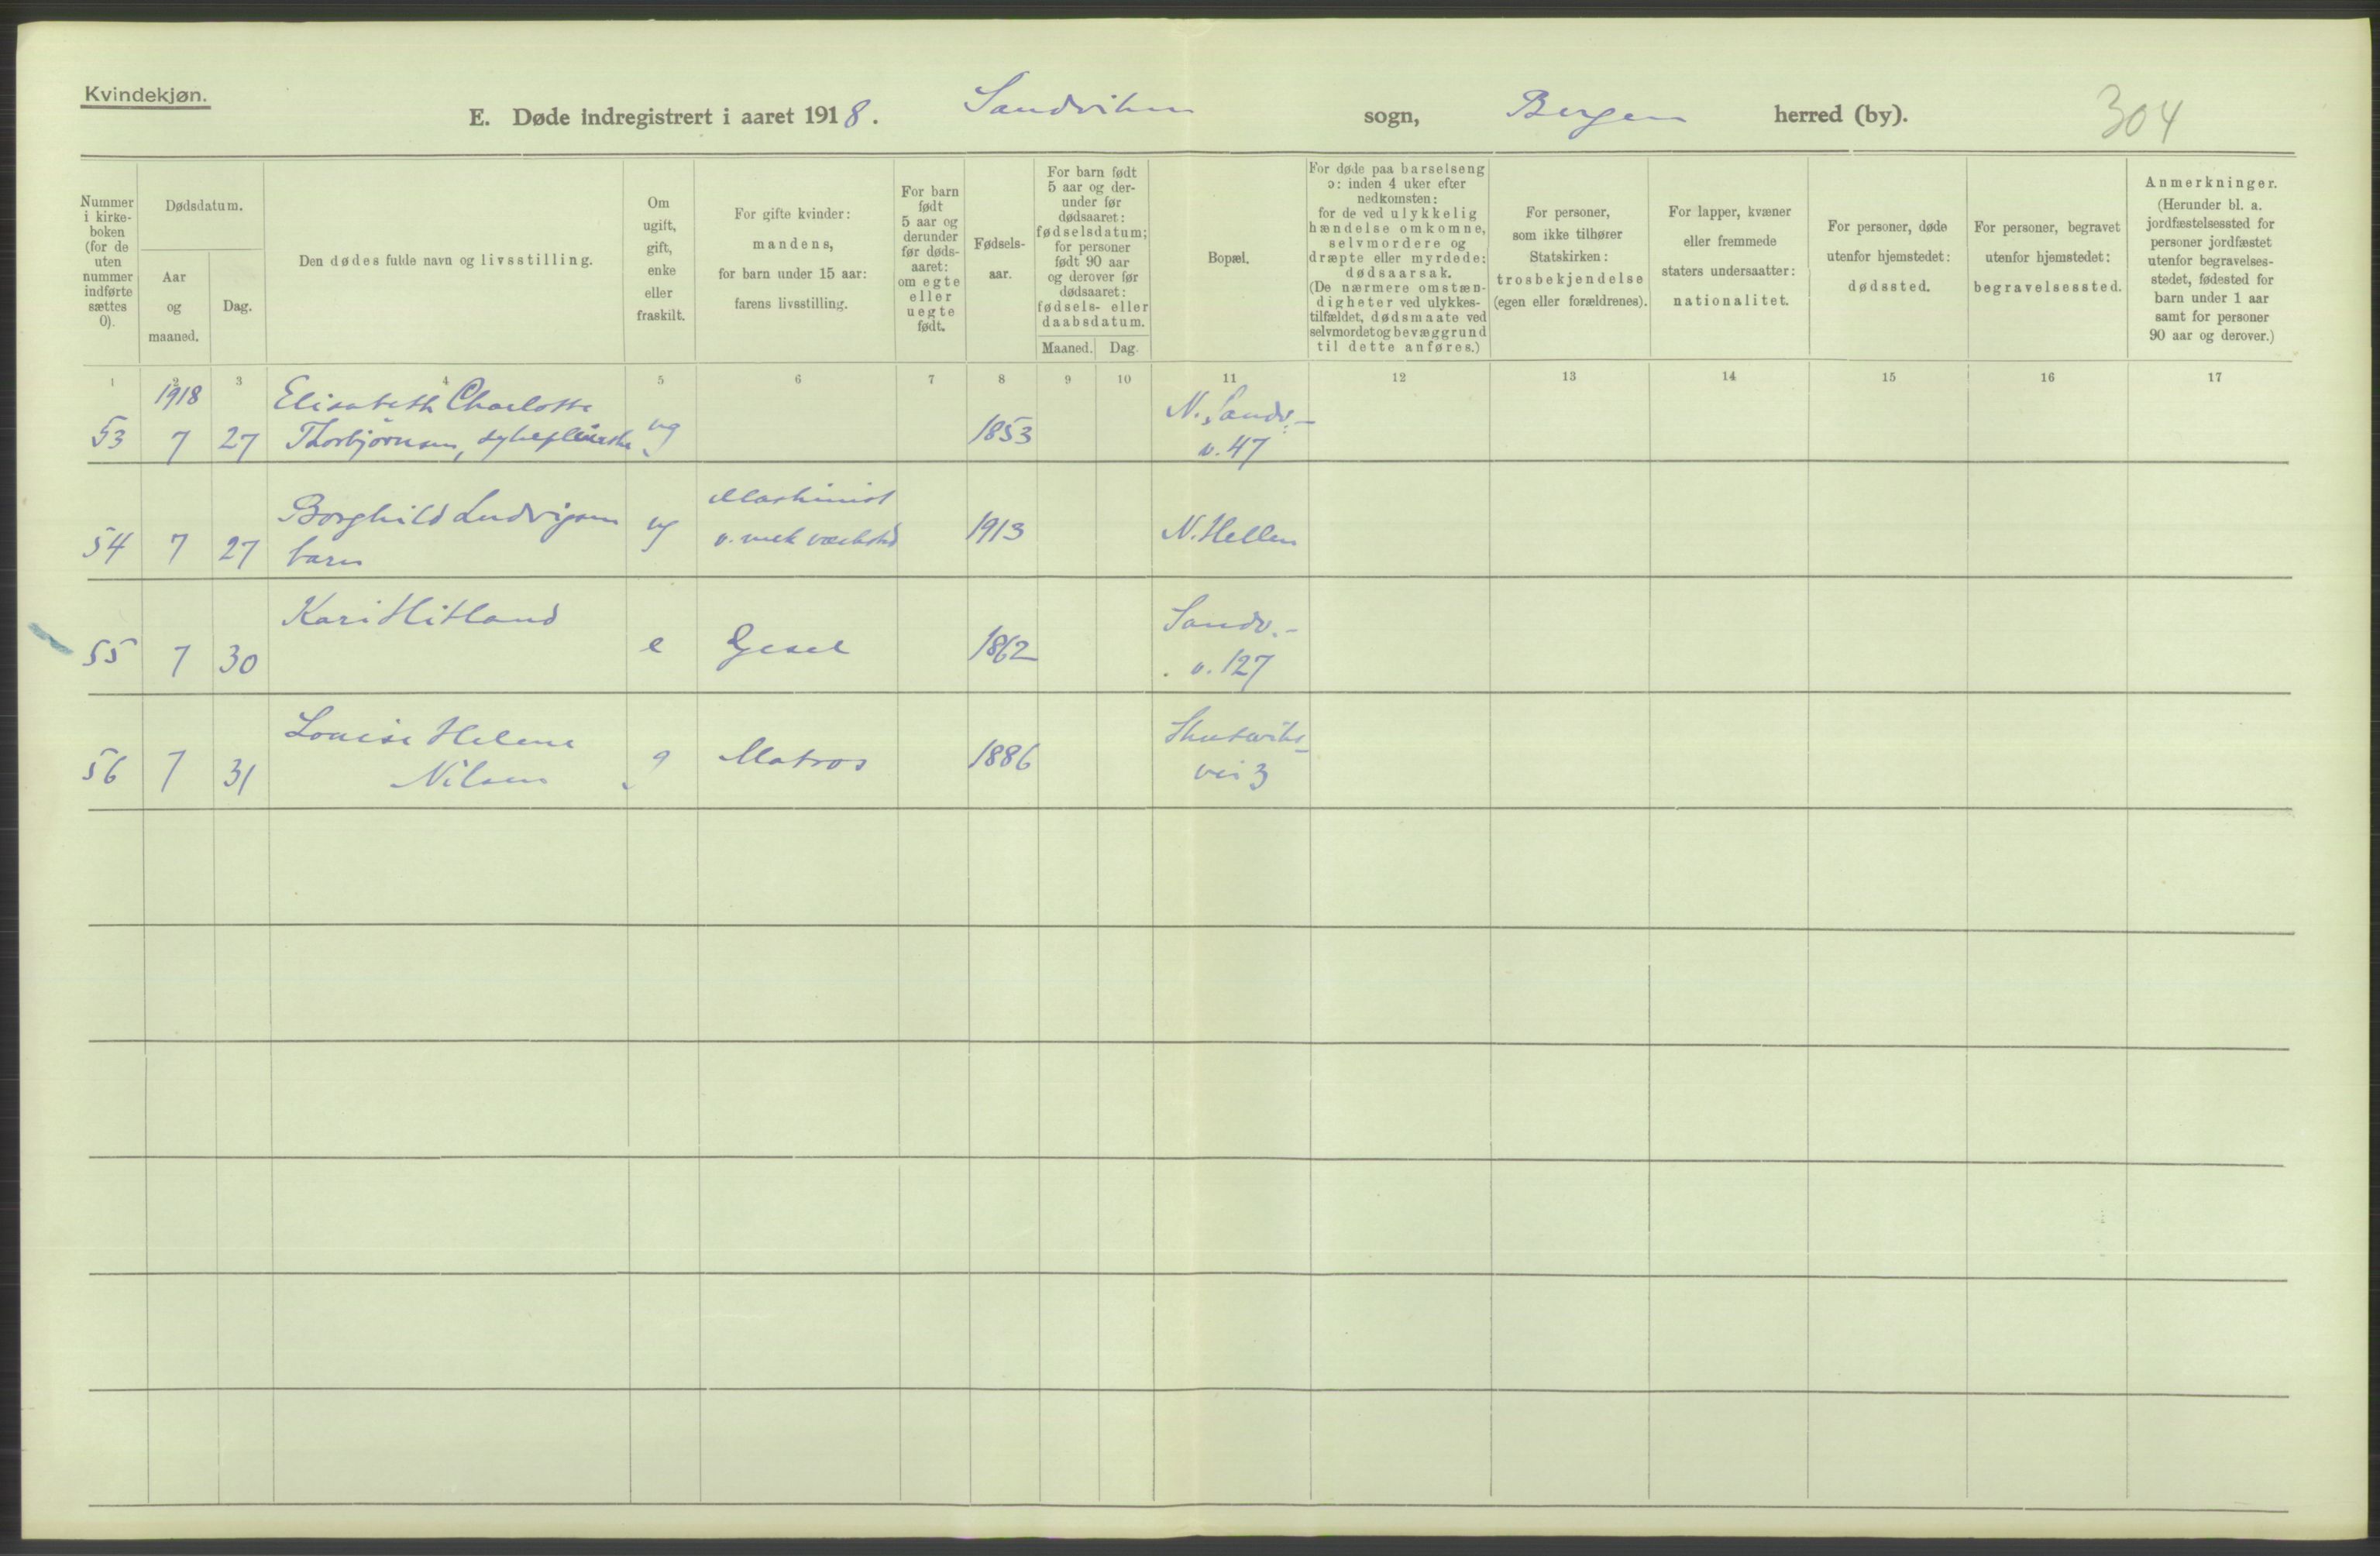 Kvindekjøn.
E. Døde indregistrert i aaret 1918. Sandviken sogn, Bergen herred (by).
304
Nummer
i kirke-
boken
(for de
uten
nummer
indførte
sættes
0).
Dødsdatum.
Aar
og
maaned.
Dag.
Den dødes fulde navn og livsstilling.
Om
ugift,
gift,
enke
eller
fraskilt.
For gifte kvinder:
mandens,
for barn under 15 aar:
farens livsstilling.
For barn
født
5 aar og
derunder
før døds-
aaret:
om egte
eller
uegte
født.
Fødsels-
aar.
For barn født
5 aar og der-
under før
dødsaaret:
fødselsdatum;
for personer
født 90 aar
og derover før
dødsaaret:
fødsels- eller
daabsdatum.
Maaned. Dag.
Bopæl.
For døde paa barselseng
ɔ: inden 4 uker efter
nedkomsten:
for de ved ulykkelig
hændelse omkomne,
selvmordere og
dræpte eller myrdede:
dødsaarsak.
(De nærmere omstæn-
digheter ved ulykkes-
tilfældet, dødsmaate ved
selvmordet og bevæggrund
til dette anføres.)
For personer,
som ikke tilhører
Statskirken:
trosbekjendelse
(egen eller forældrenes).
For lapper, kvæner
eller fremmede
staters undersaatter:
nationalitet.
For personer, døde
utenfor hjemstedet:
dødssted.
For personer, begravet
utenfor hjemstedet:
begravelsessted.
Anmerkninger.
(Herunder bl. a.
jordfæstelsessted for
personer jordfæstet
utenfor begravelses-
stedet, fødested for
barn under 1 aar
samt for personer
90 aar og derover.)
1 2 3 4 5 6 7 8 9 10 11 12 13 14 15 16 17
1918 Elisabeth Charlotte N. Sandv.-
53 7 27 Thorbjørnsen, sykepleierske ug 1853 v. 47
Borghild Ludvigsen Maskinist
54 7 27 barn ug v. mek værksted 1913 N. Hellen
Kari Hitland Sandv.-
55 7 30 e 1862 v. 127
Louise Helene Skuteviks-
56 7 31 Nilsen g Matros 1886 vei 3